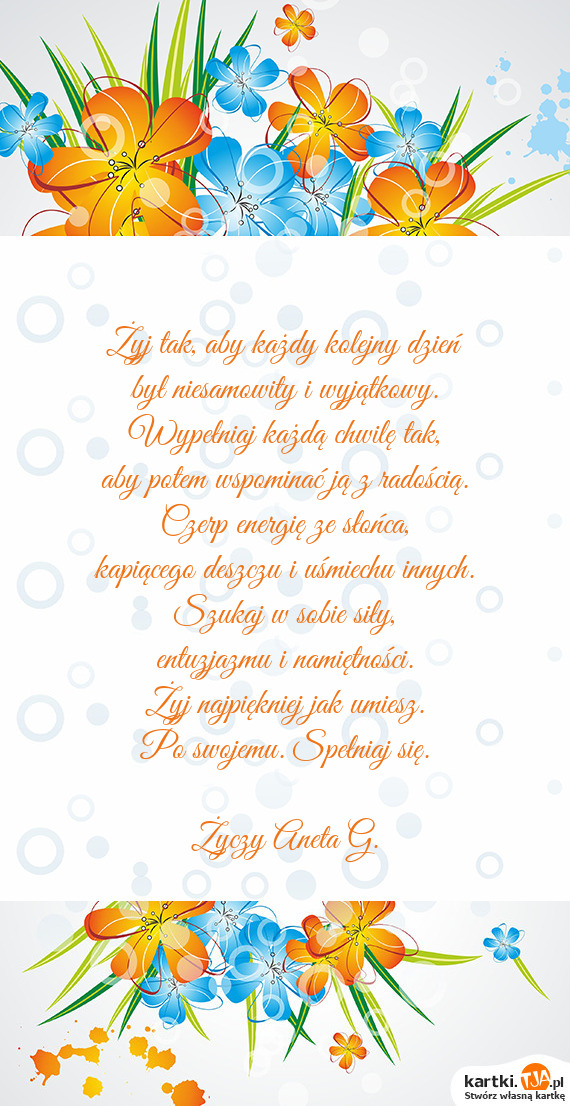 Żyj tak, aby każdy kolejny dzień
był niesamowity i wyjątkowy.
Wypełniaj każdą chwilę tak,
aby potem wspominać ją z radością.
Czerp energię ze słońca,
kapiącego deszczu i uśmiechu innych.
Szukaj w sobie siły,
entuzjazmu i namiętności.
Żyj najpiękniej jak umiesz.
Po swojemu. Spełniaj się.
Życzy Aneta G.
kartki.TJA.pl
Stwórz własną kartkę